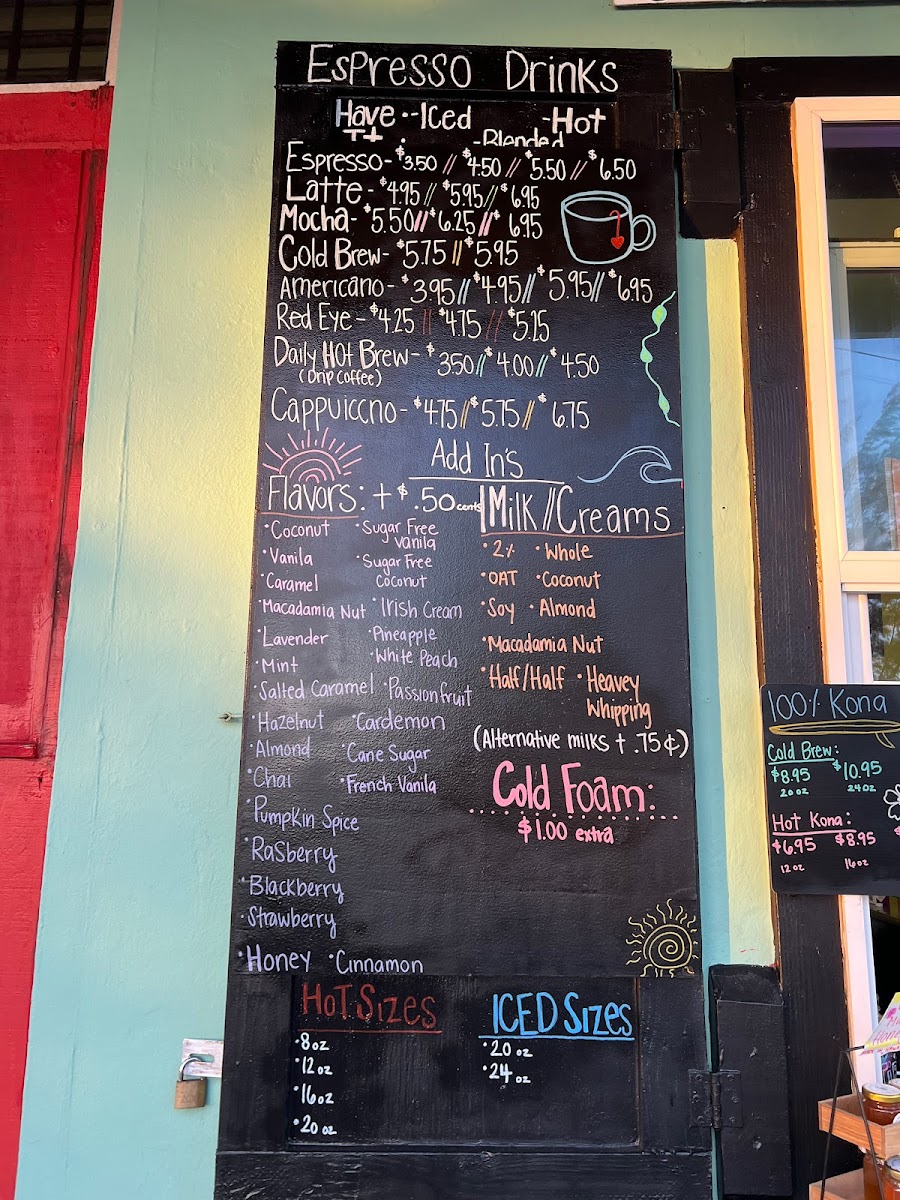 Espresso Drinks
Have --Iced -Hot
It -Blended
Espresso- $3.50 // $4.50 // $5.50 // $6.50
Latte - $4.95 // $5.95 // $6.95
Mocha- $5.50 // $6.25 // $6.95
Cold Brew- $5.75 // $5.95
Americano - $3.95 // $4.95 // $5.95 // $6.95
Red Eye - $4.25 // $4.75 // $5.25
Daily Hot Brew- $3.50 // $4.00 // $4.50
(Drip Coffee)
Cappuiccno- $4.75 // $5.75 // $6.75
Add In's
Flavors: + $.50 cents
•Coconut
•Vanila
•Caramel
•Macadamia Nut
•Lavender
•Mint
•Salted Caramel
•Hazelnut
•Almond
•Chai
•Pumpkin Spice
•Rasberry
•Blackberry
•Strawberry
•Honey •Cinnamon
•Sugar Free
vanila
•Sugar Free
coconut
•Irish Cream
•Pineapple
•White Peach
•Passionfruit
•Cardemon
•Cane Sugar
•French Vanila
Milk // Creams
•2% •Whole
•OAT •Coconut
•Soy •Almond
•Macadamia Nut
•Half/Half •Heavey
Whipping
(Alternative milks + .75¢)
Cold Foam:
$1.00 extra
Hot Sizes
•8oz
•12oz
•16oz
•20oz
ICED Sizes
•20 oz
•24 oz
100% Kona
Cold Brew:
$8.95 $10.95
20 oz 24 oz
Hot Kona:
$6.95 $8.95 $
12 oz 16 oz